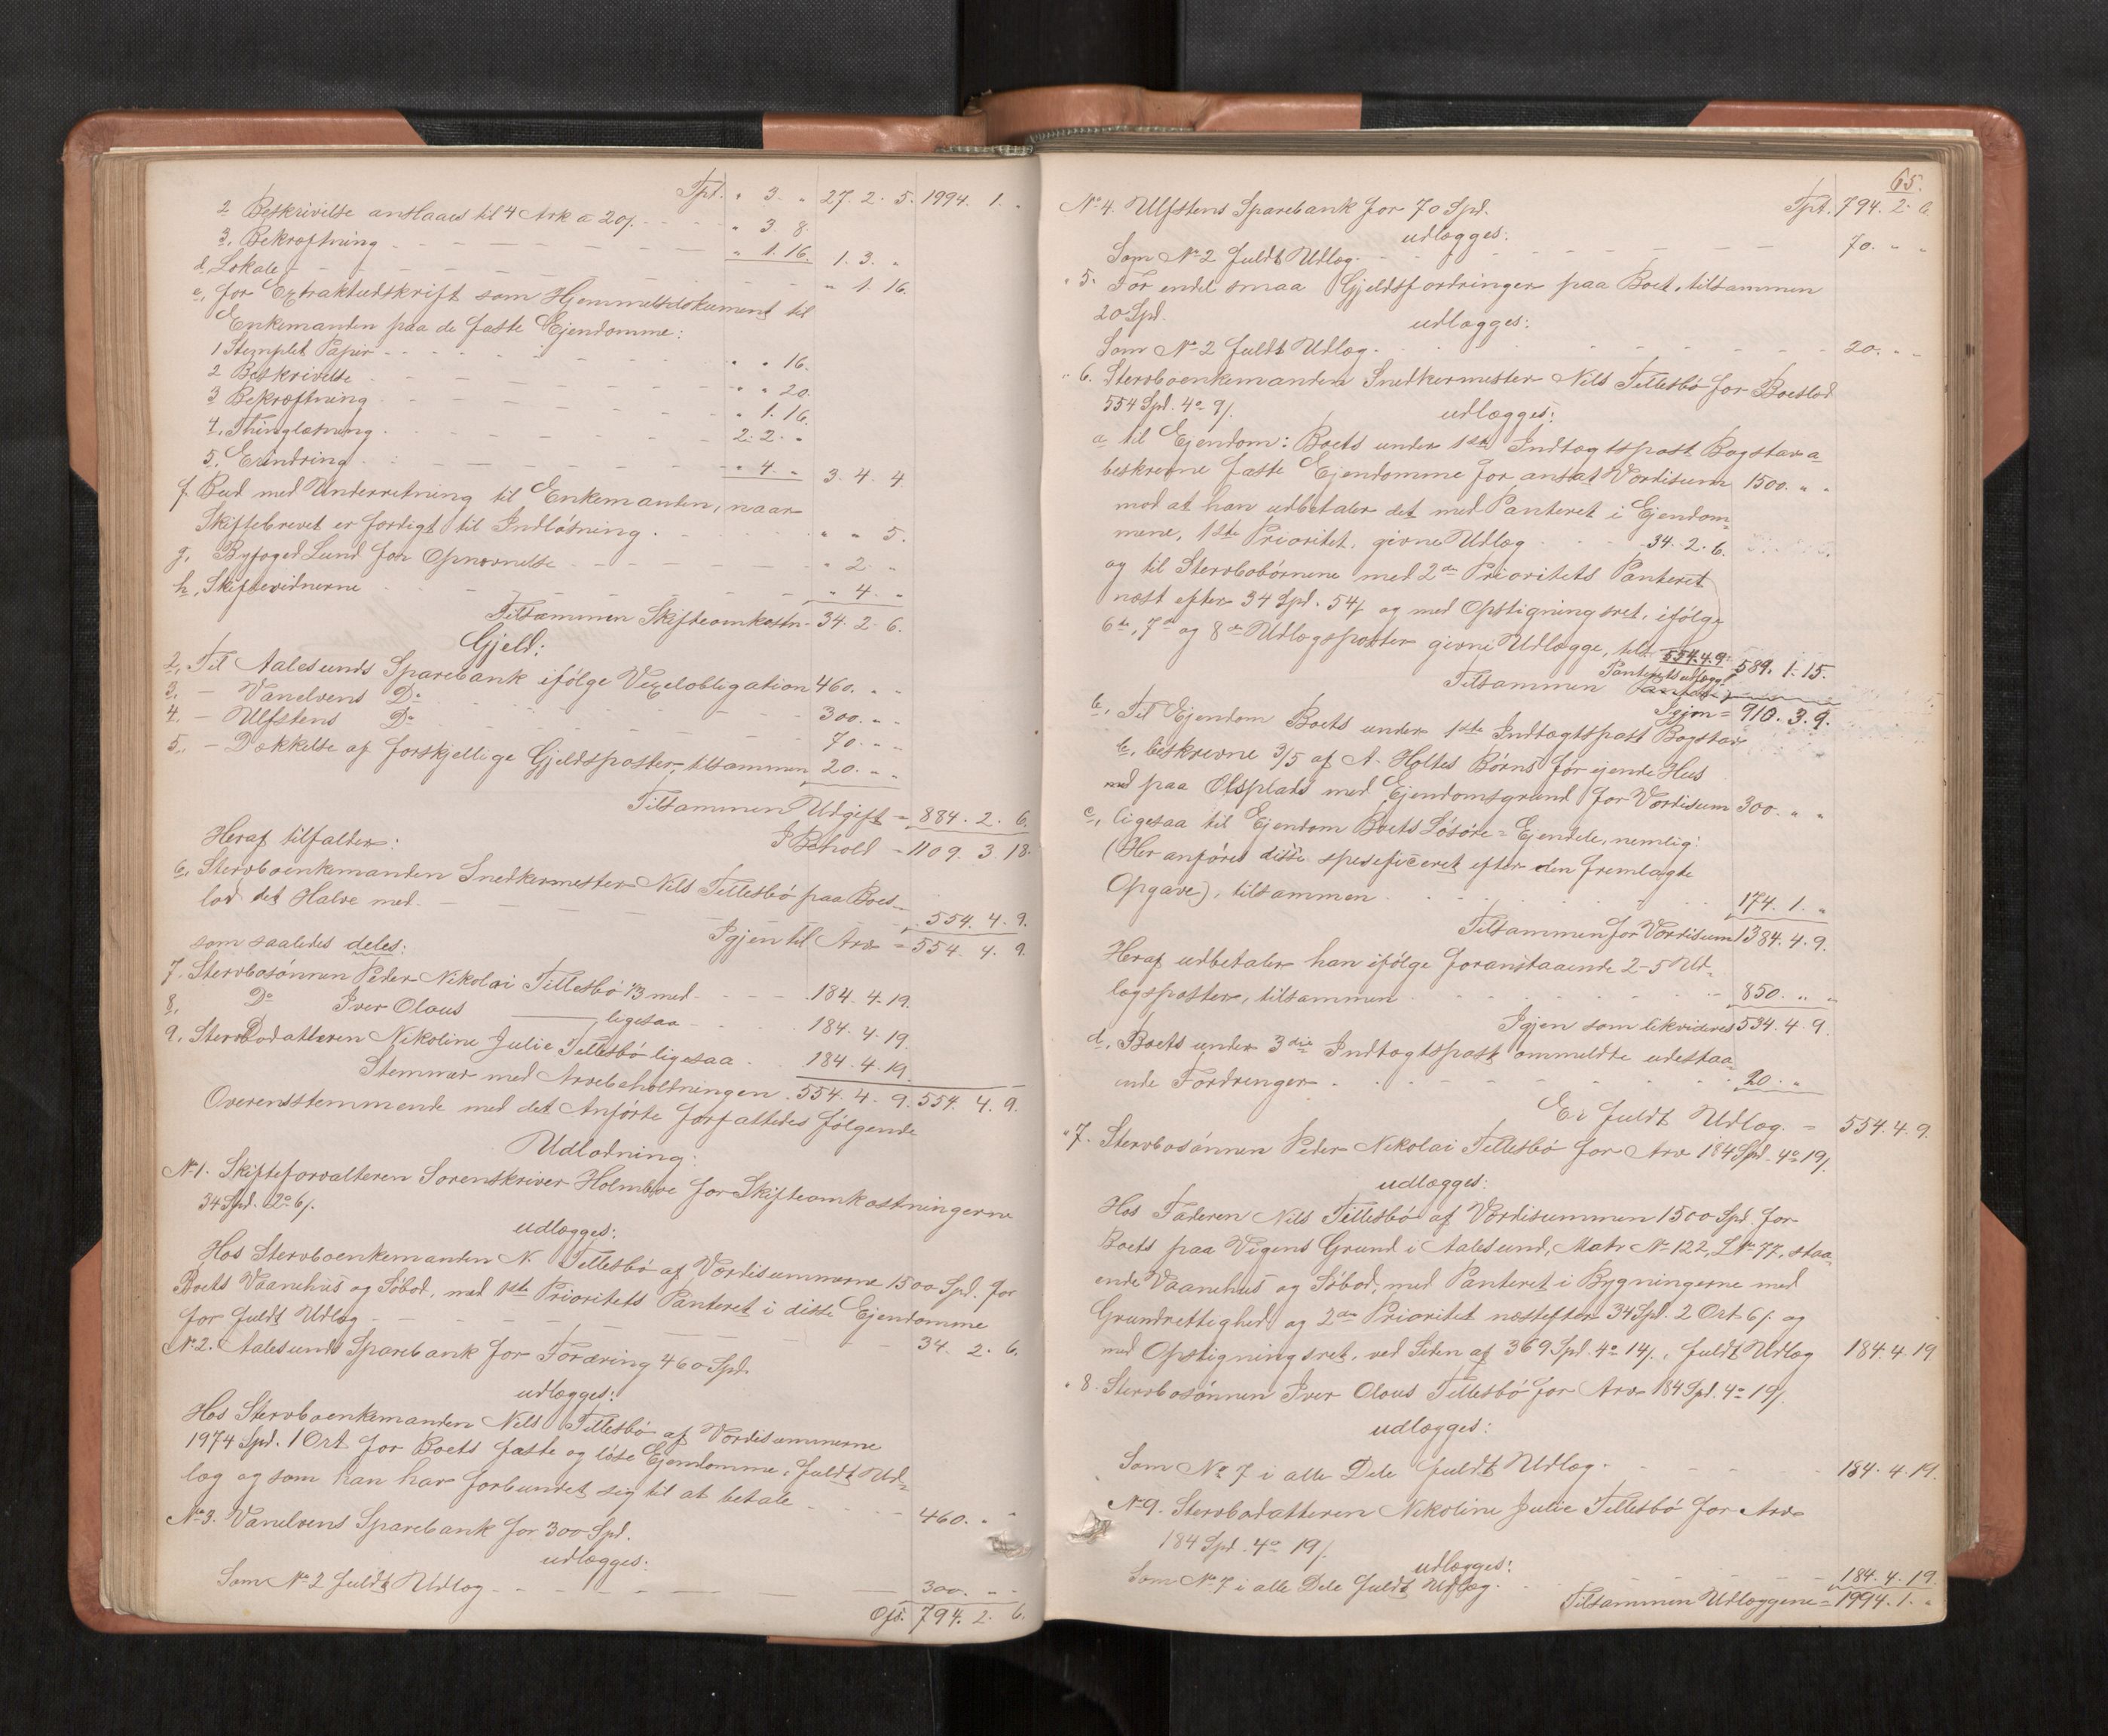 Tpt. " 3. " 27. 2. 5. 1994. 1. "
2 Beskrivelse anslaaes til 4 Ark a 20/. - - - " 3. 8.
3. Bekræftning - - - - " 1. 16. 1. 3. "
d, Lokale - - - - " 1. 16.
e, for Extraktudskrift som Hjemmelsdokument til
Enkemanden paa de faste Ejendomme:
1 Stemplet Papir - - - - " " 16.
2 Beskrivelse - - - - " " 20.
3 Bekræftning - - - - " 1. 16.
4. Thinglæsning - - - - 2. 2. "
5. Erindring - - - - " 4. " 3. 4. 4
f. Bud med Underretning til Enkemanden, naar
Skiftebrevet er færdigt til Indløsning - - - - " " 5.
g, Byfoged Lund for Opnævnelse - - - - " 2. "
h, Skiftevidnerne - - - - " 4. "
Tilsammen Skifteomkostn = 34. 2. 6.
Gjeld:
2, Til Aalesunds Sparebank ifølge Vexelobligation 460. " "
3. - Vanelvens Do - - - - 300. " "
4. - Ulfstens Do - - - - 70. " "
5. - Dækkelse af forskjellige Gjeldsposter, tilsammen 20. " "
Tilsammen Udgift = 884. 2. 6.
I Behold = 1109. 3. 18.
Heraf tilfalder:
6, Stervboenkemanden Snedkermester Nils Tillesbø paa Boes-
lod det Halve med - - - - 554. 4. 9.
Igjen til Arv = 554. 4. 9.
som saaledes deles:
7. Stervbosønnen Peder Nikolai Tillesbø 1/3 med - - - - 184. 4. 19.
8, Do Iver Olaus ——— ligesaa - - - 184. 4. 19.
9. Stervbodatteren Nikoline Julie Tillesbø ligesaa - 184. 4. 19.
Stemmer med Arvebeholdningen 554. 4. 9. 554. 4. 9.
Overensstemmende med det Anførte forfattedes følgende
Udlodning:
No 1. Skifteforvalteren Sorenskriver Holmboe for Skifteomkostningerne
34 Spd. 2o 6/.
udlægges:
Hos Stervboenkemanden N. Tillesbø af Værdisummerne 1500 Spd. for
Boets Vaanehus og Søbod, med 1ste Prioritets Panteret i disse Ejendomme
for fuldt Udlæg - - - - 34. 2. 6.
No 2. Aalesunds Sparebank for Fordring 460 Spd.
udlægges:
Hos Stervboenkemanden Nils Tillesbø af Værdisummerne
1974 Spd. 1 Ort for Boets faste og løse Ejendomme, fuldt Ud-
læg og som han har forbundet sig til at betale - - - 460. " "
No 3. Vanelvens Sparebank for 300 Spd.
udlægges:
Som No 2 fuldt Udlæg - - - - 300. " "
Ofs. 794. 2. 6.
65.
No 4. Ulfstens Sparebank for 70 Spd. Tpt. 794. 2. 6.
udlægges:
Som No 2 fuldt Udlæg - - - - 70. " "
" 5. For endel smaa Gjeldsfordringer paa Boet, tilsammen
20 Spd.
udlægges:
Som No 2 fuldt Udlæg - - - - 20. " "
" 6. Stervboenkemanden Snedkermester Nils Tillesbø for Boeslod
554 Spd. 4o 9/.
udlægges:
a til Ejendom: Boets under 1ste Indtægtspost Bogstav a
beskrevne faste Ejendomme for ansat Værdisum 1500. " "
mod at han udbetaler det med Panteret i Ejendom-
mene, 1ste Prioritet, givne Udlæg - - - 34. 2. 6.
og til Stervbobørnene med 2den Prioritets Panteret
næst efter 34 Spd. 54/ og med Opstigningsret, ifølge
6te, 7de og 8de Udlægsposter givne Udlægge, tils. 554. 4. 9. 589. 1. 15.
Tilsammen Panterets udlægg
Igjen = 910. 3. 9.
b, Til Ejendom Boets under 1ste Indtægtspost Bogstav
b, beskrevne 3/5 af A. Holtes Børns før ejende Hus
ned paa Olsplads med Ejendomsgrund for Værdisum 300. " "
c, ligesaa til Ejendom Boets Løsøre-Ejendele, nemlig:
(Her anføres disse spesificeret efter den fremlagte
Opgave), tilsammen - - - - 174. 1. "
Tilsammen for Værdisum 1384. 4. 9.
Heraf udbetaler han ifølge foranstaaende 2-5 Ud-
lægsposter, tilsammen - - - - 850. " "
Igjen som likvideres 534. 4. 9.
d, Boets under 3die Indtægtspost ommeldte udestaa-
ende Fordringer - - - - 20. "
Er fuldt Udlæg. = 554. 4. 9.
" 7. Stervbosønnen Peder Nikolai Tillesbø for Arv 184 Spd. 4o 19/.
udlægges:
Hos Faderen Nils Tillesbø af Værdisummen 1500 Spd. for
Boets paa Vigens Grund i Aalesund, Matr No 122, L No 77, staa-
ende Vaanehus og Søbod, med Panteret i Bygningerne med
Grundrettighed og 2den Prioritet næstefter 34 Spd. 2 Ort 6/. og
med Opstigningsret, ved Siden af 369 Spd. 4o 14/., fuldt Udlæg 184. 4. 19
" 8. Stervbosønnen Iver Olaus Tillesbø for Arv 184 Spd. 4o 19/.
udlægges:
Som No 7 i alle Dele fuldt Udlæg - - - - 184. 4. 19.
No 9. Stervbodatteren Nikoline Julie Tillesbø for Arv
184 Spd. 4o 19/.
udlægges:
Som No 7 i alle Dele fuldt Udlæg - - - - 184. 4. 19.
Tilsammen Udlæggene = 1994. 1. "